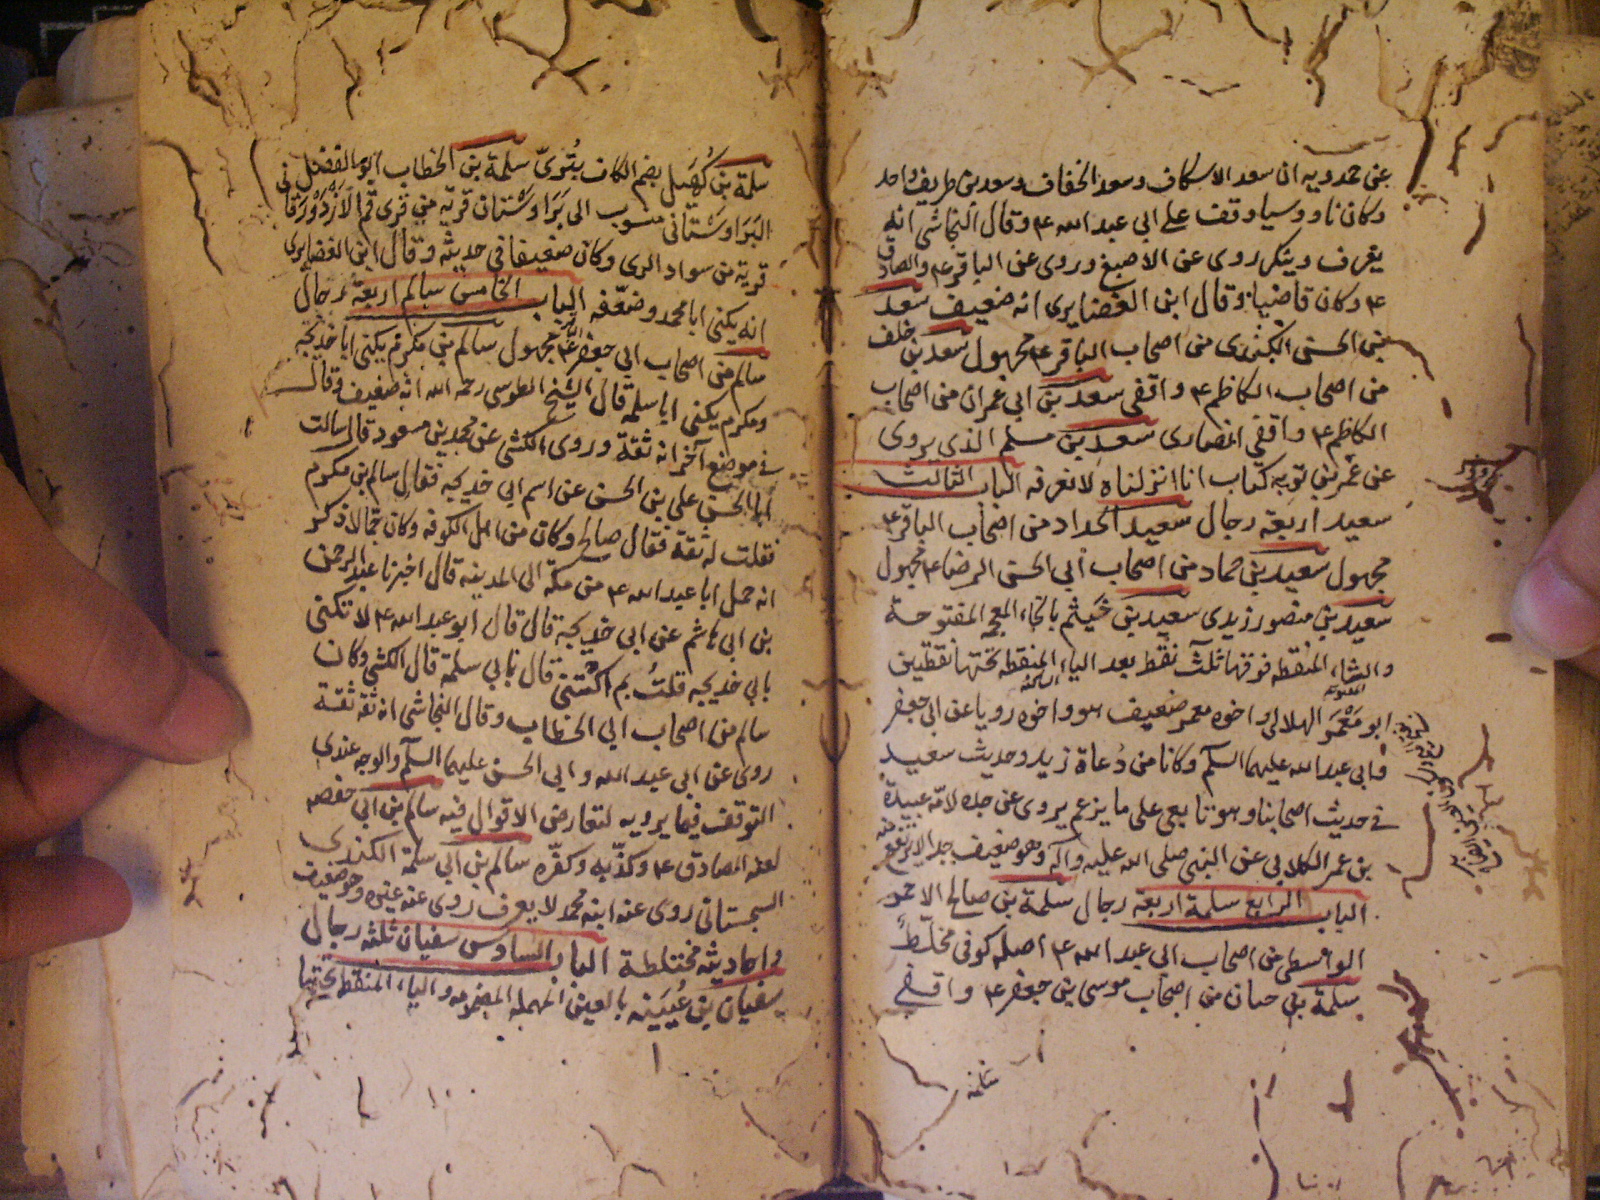 عن حمدويه ان سعد الاسكاف وسعد الخفاف وسعد بن طريف واحد
وكان ناووسيا وقف على ابي عبد الله ع وقال النجاشى انه
يعرف وينكر روى عن الاصبغ وروى عن الباقر ع والصادق
ع وكان قاضيا وقال ابن الغضايرى انه ضعيف سعد
بن الحسن الكندى من اصحاب الباقر ع مجهول سعد بن خلف
من اصحاب الكاظم ع واقفى سعد بن ابي عمران من اصحاب
الكاظم ع واقفى انصارى سعد بن مسلم الذى يروى
عن عمر بن توبه كتاب انا انزلناه لا نعرفه الباب الثالث
سعيد اربعة رجال سعيد الحداد من اصحاب الباقر ع
مجهول سعيد بن حماد من اصحاب ابي الحسن الرضا ع مجهول
سعيد بن منصور زيدى سعيد بن خيثم بالخاء المعجمة المفتوحة
والثاء المنقطه فوقها ثلث نقط بعد الياء المنقطه تحتها نقطين
ابو معمر الهلالى واخوه معمر ضعيف هو واخوه رويا عن ابي جعفر
وابي عبد الله عليهما السلم وكانا من دعاة زيد وحديث سعيد
في حديث اصحابنا وهو تابعى على ما يزعم يروى عن جده لامه عبيدة
بن عمر الكلابي عن النبى صلى الله عليه وآله وهو ضعيف جدا لا يرتفع به
الباب الرابع سلمة اربعة رجال سلمة بن صالح الاحمر
الواسطى من اصحاب ابي عبد الله ع اصله كوفى مخلط
سلمة بن حيان من اصحاب موسى بن جعفر ع واقفى
سلمة
سلمة بن كهيل بضم الكاف بترى سلمة بن الخطاب ابو الفضل
البراوستانى منسوب الى براوستان قرية من قرى قم الازدورقانى
قرية من سواد الرى وكان ضعيفا فى حديثه وقال ابن الغضايرى
انه يكنى ابا محمد وضعفه الباب الخامس سالم اربعة رجال
سالم من اصحاب ابي جعفر ع مجهول سالم بن مكرم يكنى ابا خديجه
ومكرم يكنى ابا سلمه قال الشيخ الطوسى رحمه الله انه ضعيف وقال
في موضع آخر انه ثقة وروى الكشى عن محمد بن مسعود قال سالت
ابا الحسن على بن الحسن عن اسم ابي خديجه فقال سالم بن مكرم
فقلت له ثقة فقال صالح وكان من اهل الكوفه وكان جمالا ذكر
انه حمل ابا عبد الله ع من مكة الى المدينه قال اخبرنا عبد الرحمن
بن ابي هاشم عن ابي خديجة قال قال ابو عبد الله ع لا تكتنى
بابي خديجه قلت بم اكتنى قال بابي سلمة قال الكشى وكان
سالم من اصحاب ابي الخطاب وقال النجاشى انه ثقة ثقة
روى عن ابي عبد الله وابي الحسن عليهما السلم والوجه عندى
التوقف فيما يرويه لتعارض الاقوال فيه سالم بن ابي حفصه
لعنه الصادق ع وكذبه وكفره سالم بن ابي سلمة الكندى
السجستانى روى عنه ابنه محمد لا يعرف روى عنه غيره وهو ضعيف
واحاديثه مختلطة الباب السادس سفيان ثلثه رجال
سفيان بن عيينه بالعين المهمله المضمومه والياء المنقطه تحتها